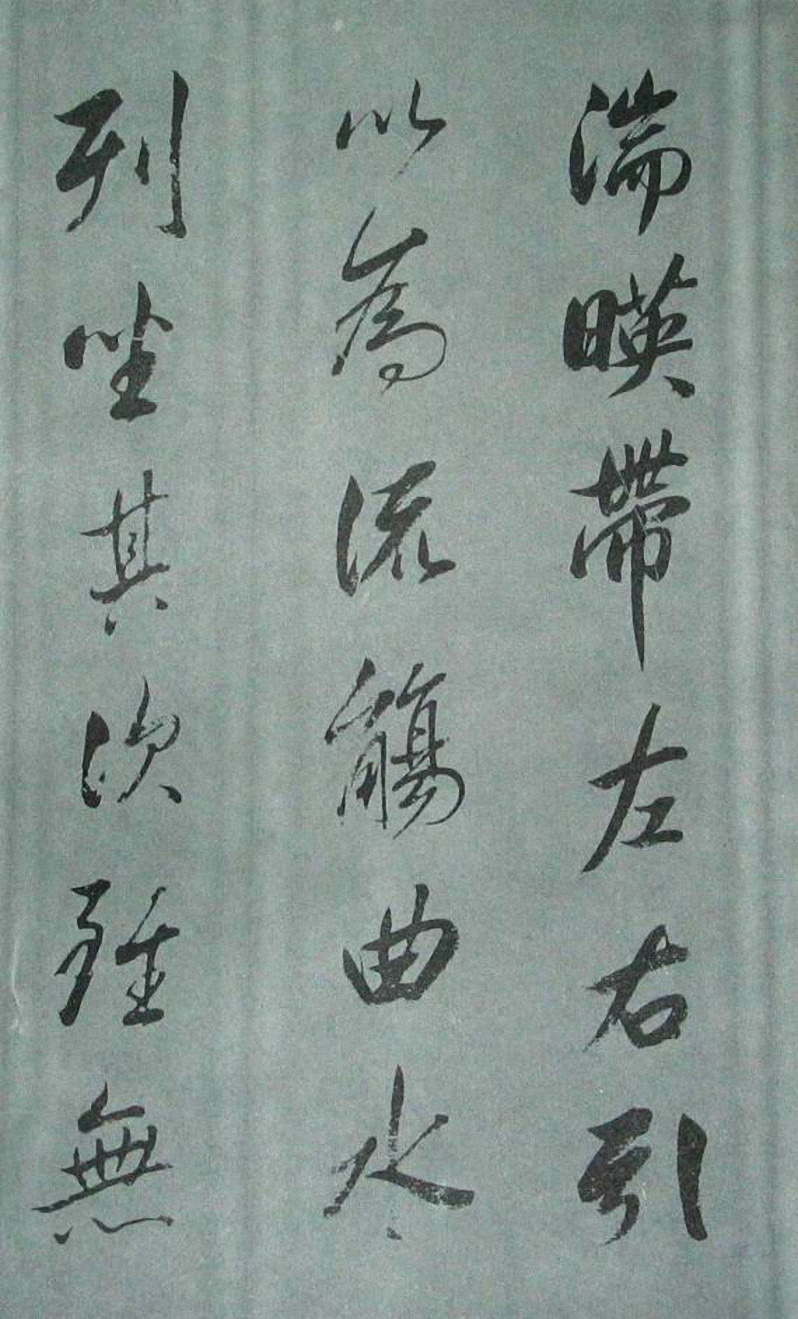 湍暎帶左右引
以為流觴曲水
列坐其次雖無